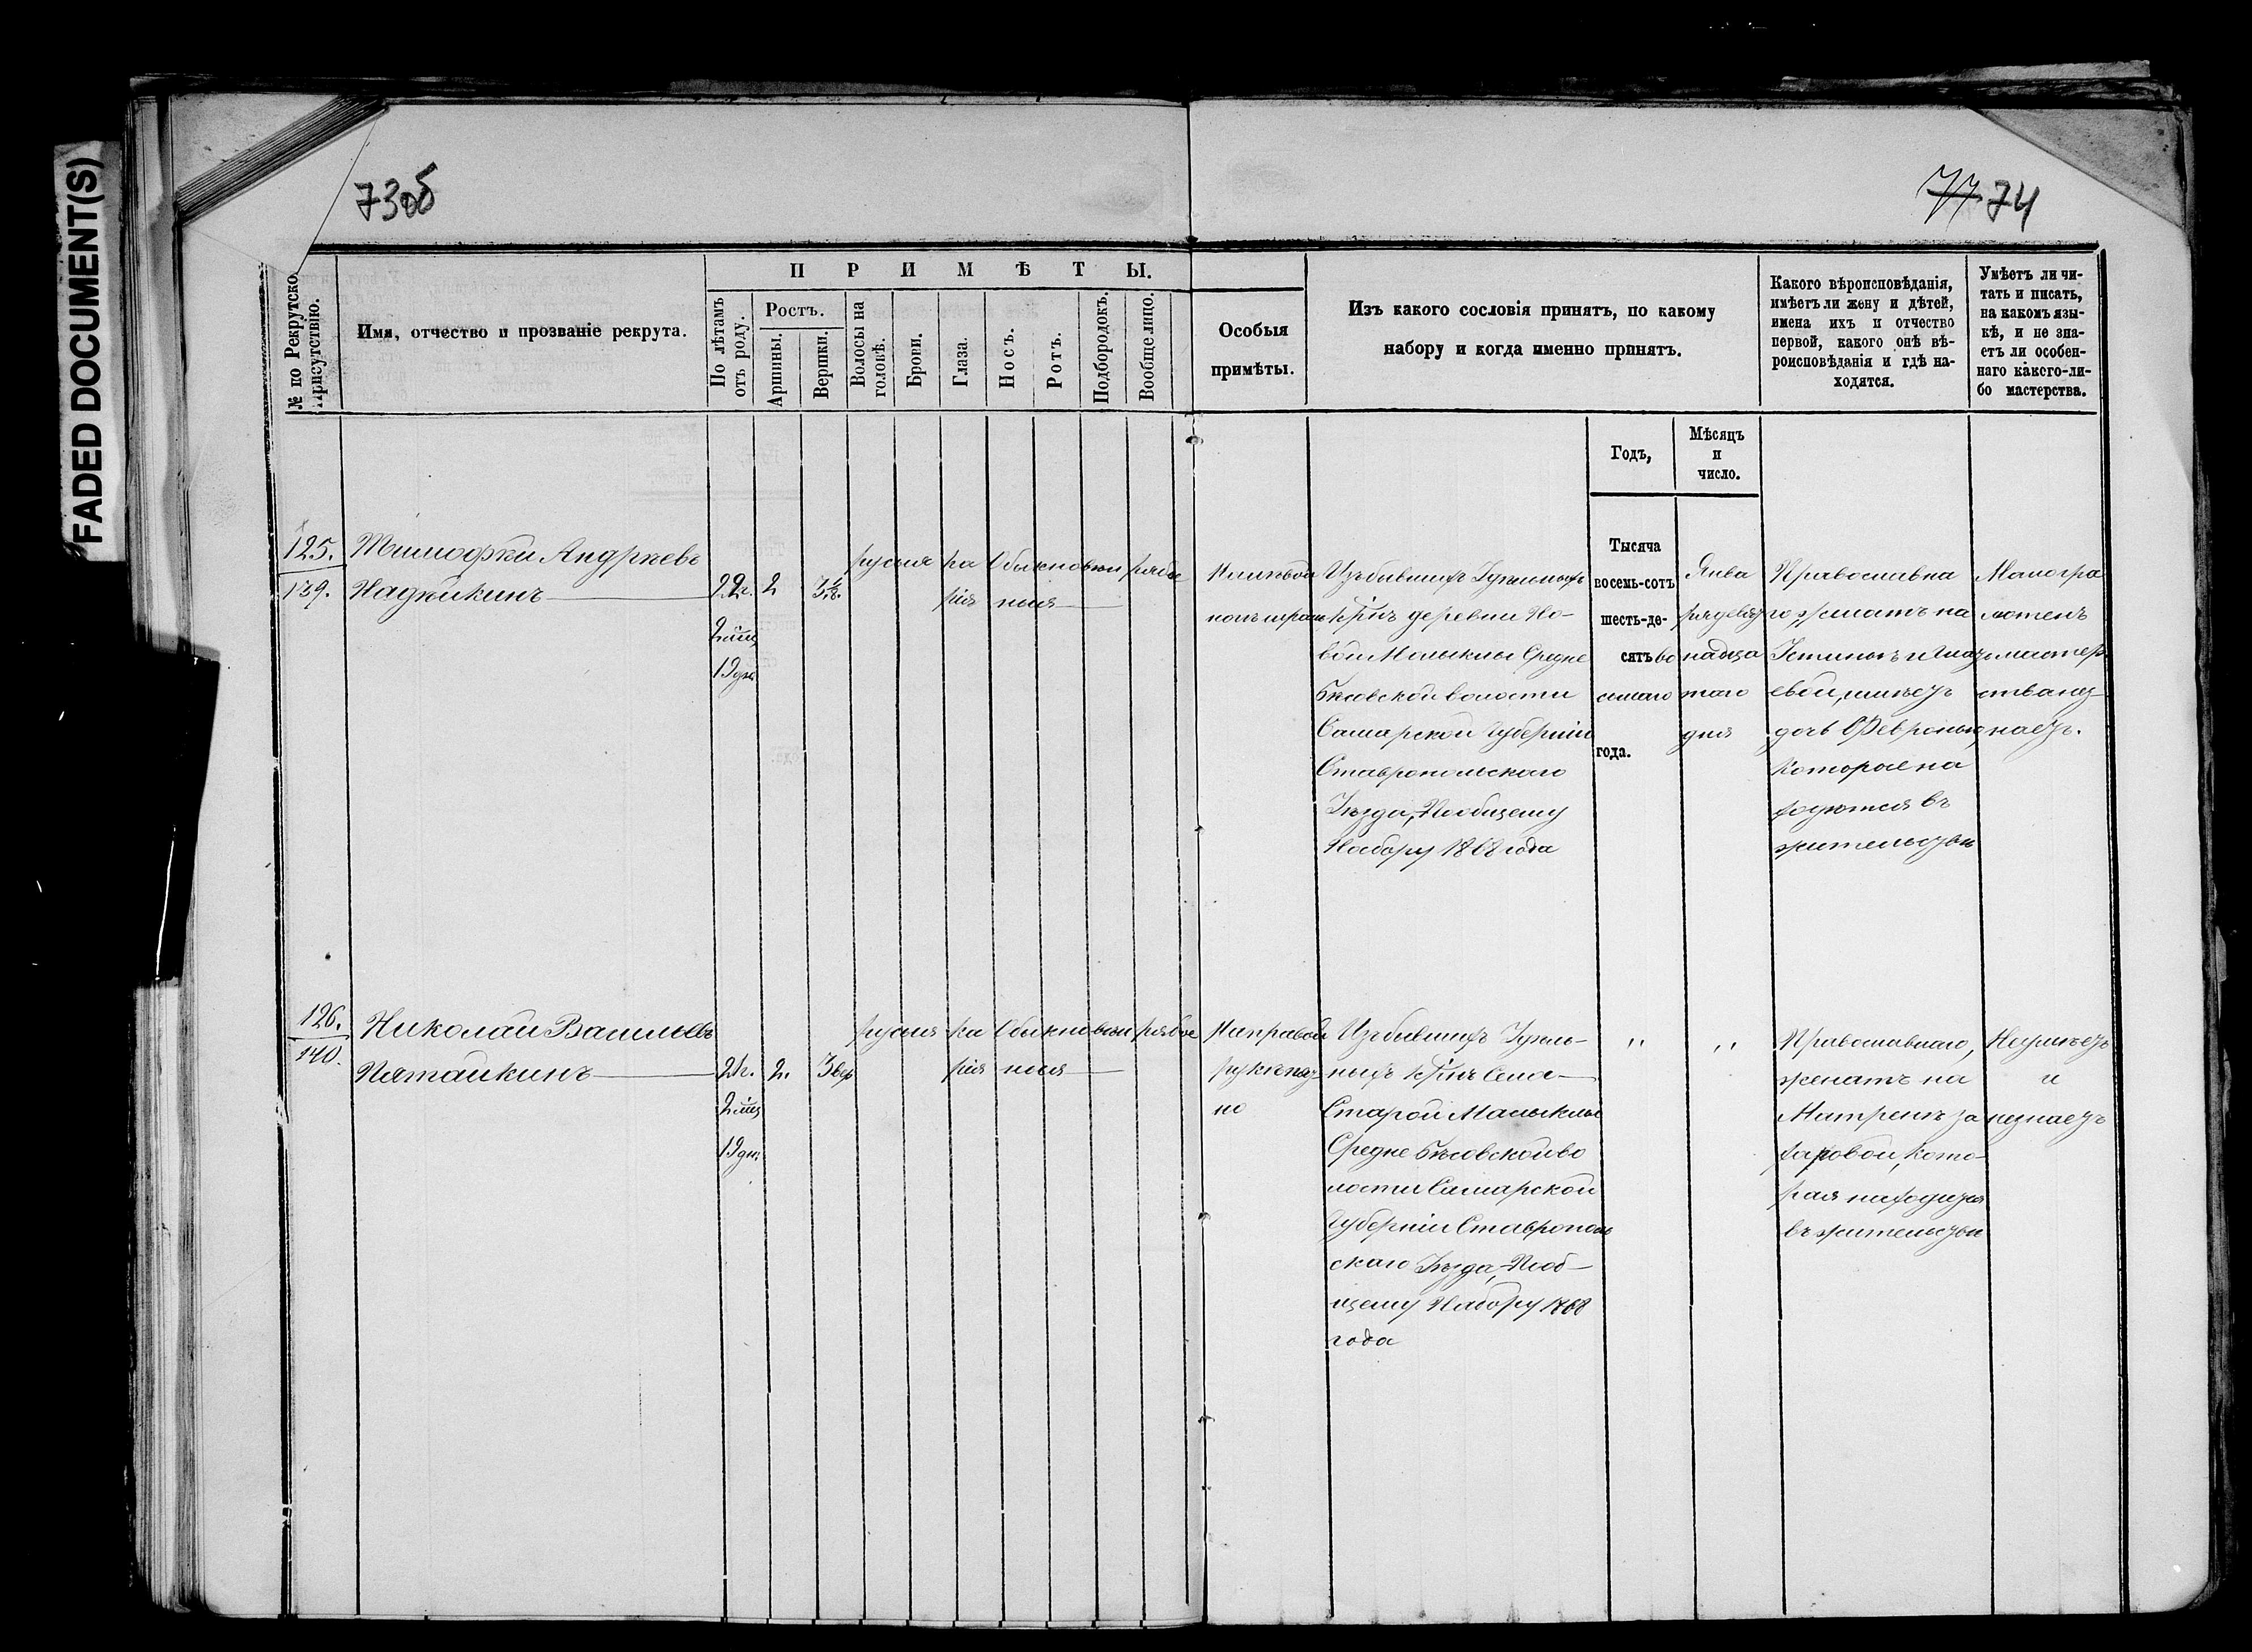 FADED DOCUMENT(S)
73об
77. 74
№ по Рекрутско
Присутствію.
Имя, отчество и прозваніе рекрута.
ПРИМѢТЫ.
По лѣтамъ
отъ роду.
Ростъ.
Аршины.
Вершки.
Волосы на
головѣ.
Брови.
Глаза.
Носъ.
Ротъ.
Подбородокъ.
Вообще лицо.
Особыя
примѣты.
Изъ какого сословія принятъ, по какому
набору и когда именно принятъ.
Какого вѣроисповѣданія,
имѣетъ ли жену и дѣтей,
имена ихъ и отчество
первой, какого онѣ вѣ-
роисповѣданія и гдѣ на-
ходятся.
Умѣетъ ли чи-
тать и писать,
на какомъ язы-
кѣ, и не зна-
етъ ли особен-
наго какого-ли-
бо мастерства.
Годъ,
Мѣсяцъ
и
число.
125.
139.
Тимофей Андреевъ
Надѣйкинъ
22г.
2 мѣц
19 дн
2
3½.
русыя
ка
рія
Обыкновен
ныя
рябое
На лѣвой
Изъ бывшихъ Удѣльныхъ
Кр̃нъ деревни Но-
вой Малыклы Средне
Бѣсовской волости
Самарской Губерніи
Ставропольскаго
Уѣзда, По общему
Набору 1868 года
Тысяча
восемь-сотъ
шесть-де-
сять во
сьмаго
года.
Янва
ря девят
надца
таго
дня
Православна
го, женатъ на
Устиньѣ
евой, имѣетъ
дочь Февронью,
которые на
ходятся въ
жительствѣ
Малогра
мотенъ
мастер
ства не з
наетъ.
126.
140.
Николай Васильевъ
Пятайкинъ
21г.
2 мѣц
19 дн
2.
3 вер
русыя
ка
рія
Обыкновен
ныя
рябое
На правой
рукѣ пят
но
Изъ бывшихъ Удѣль-
ныхъ Кр̃нъ Села
Старой Малыклы
Средне Бѣсовской во
лости Самарской
Губерніи Ставрополь
скаго Уѣзда, По об-
щему Набору 1868
года
,,
,,
Православнаго,
женатъ на
Матренѣ За
харовой, кото-
рая находится
въ жительствѣ
Неумѣетъ
и
незнаетъ